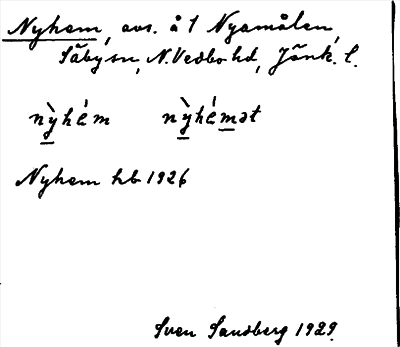 Nyhem, avs. å 1 Nyamålen,
Säbysn, N. Vedbo hd, Jönk. l.
nỳhém nỳhémət
Nyhem hb 1926
Sven Sandberg 1929.